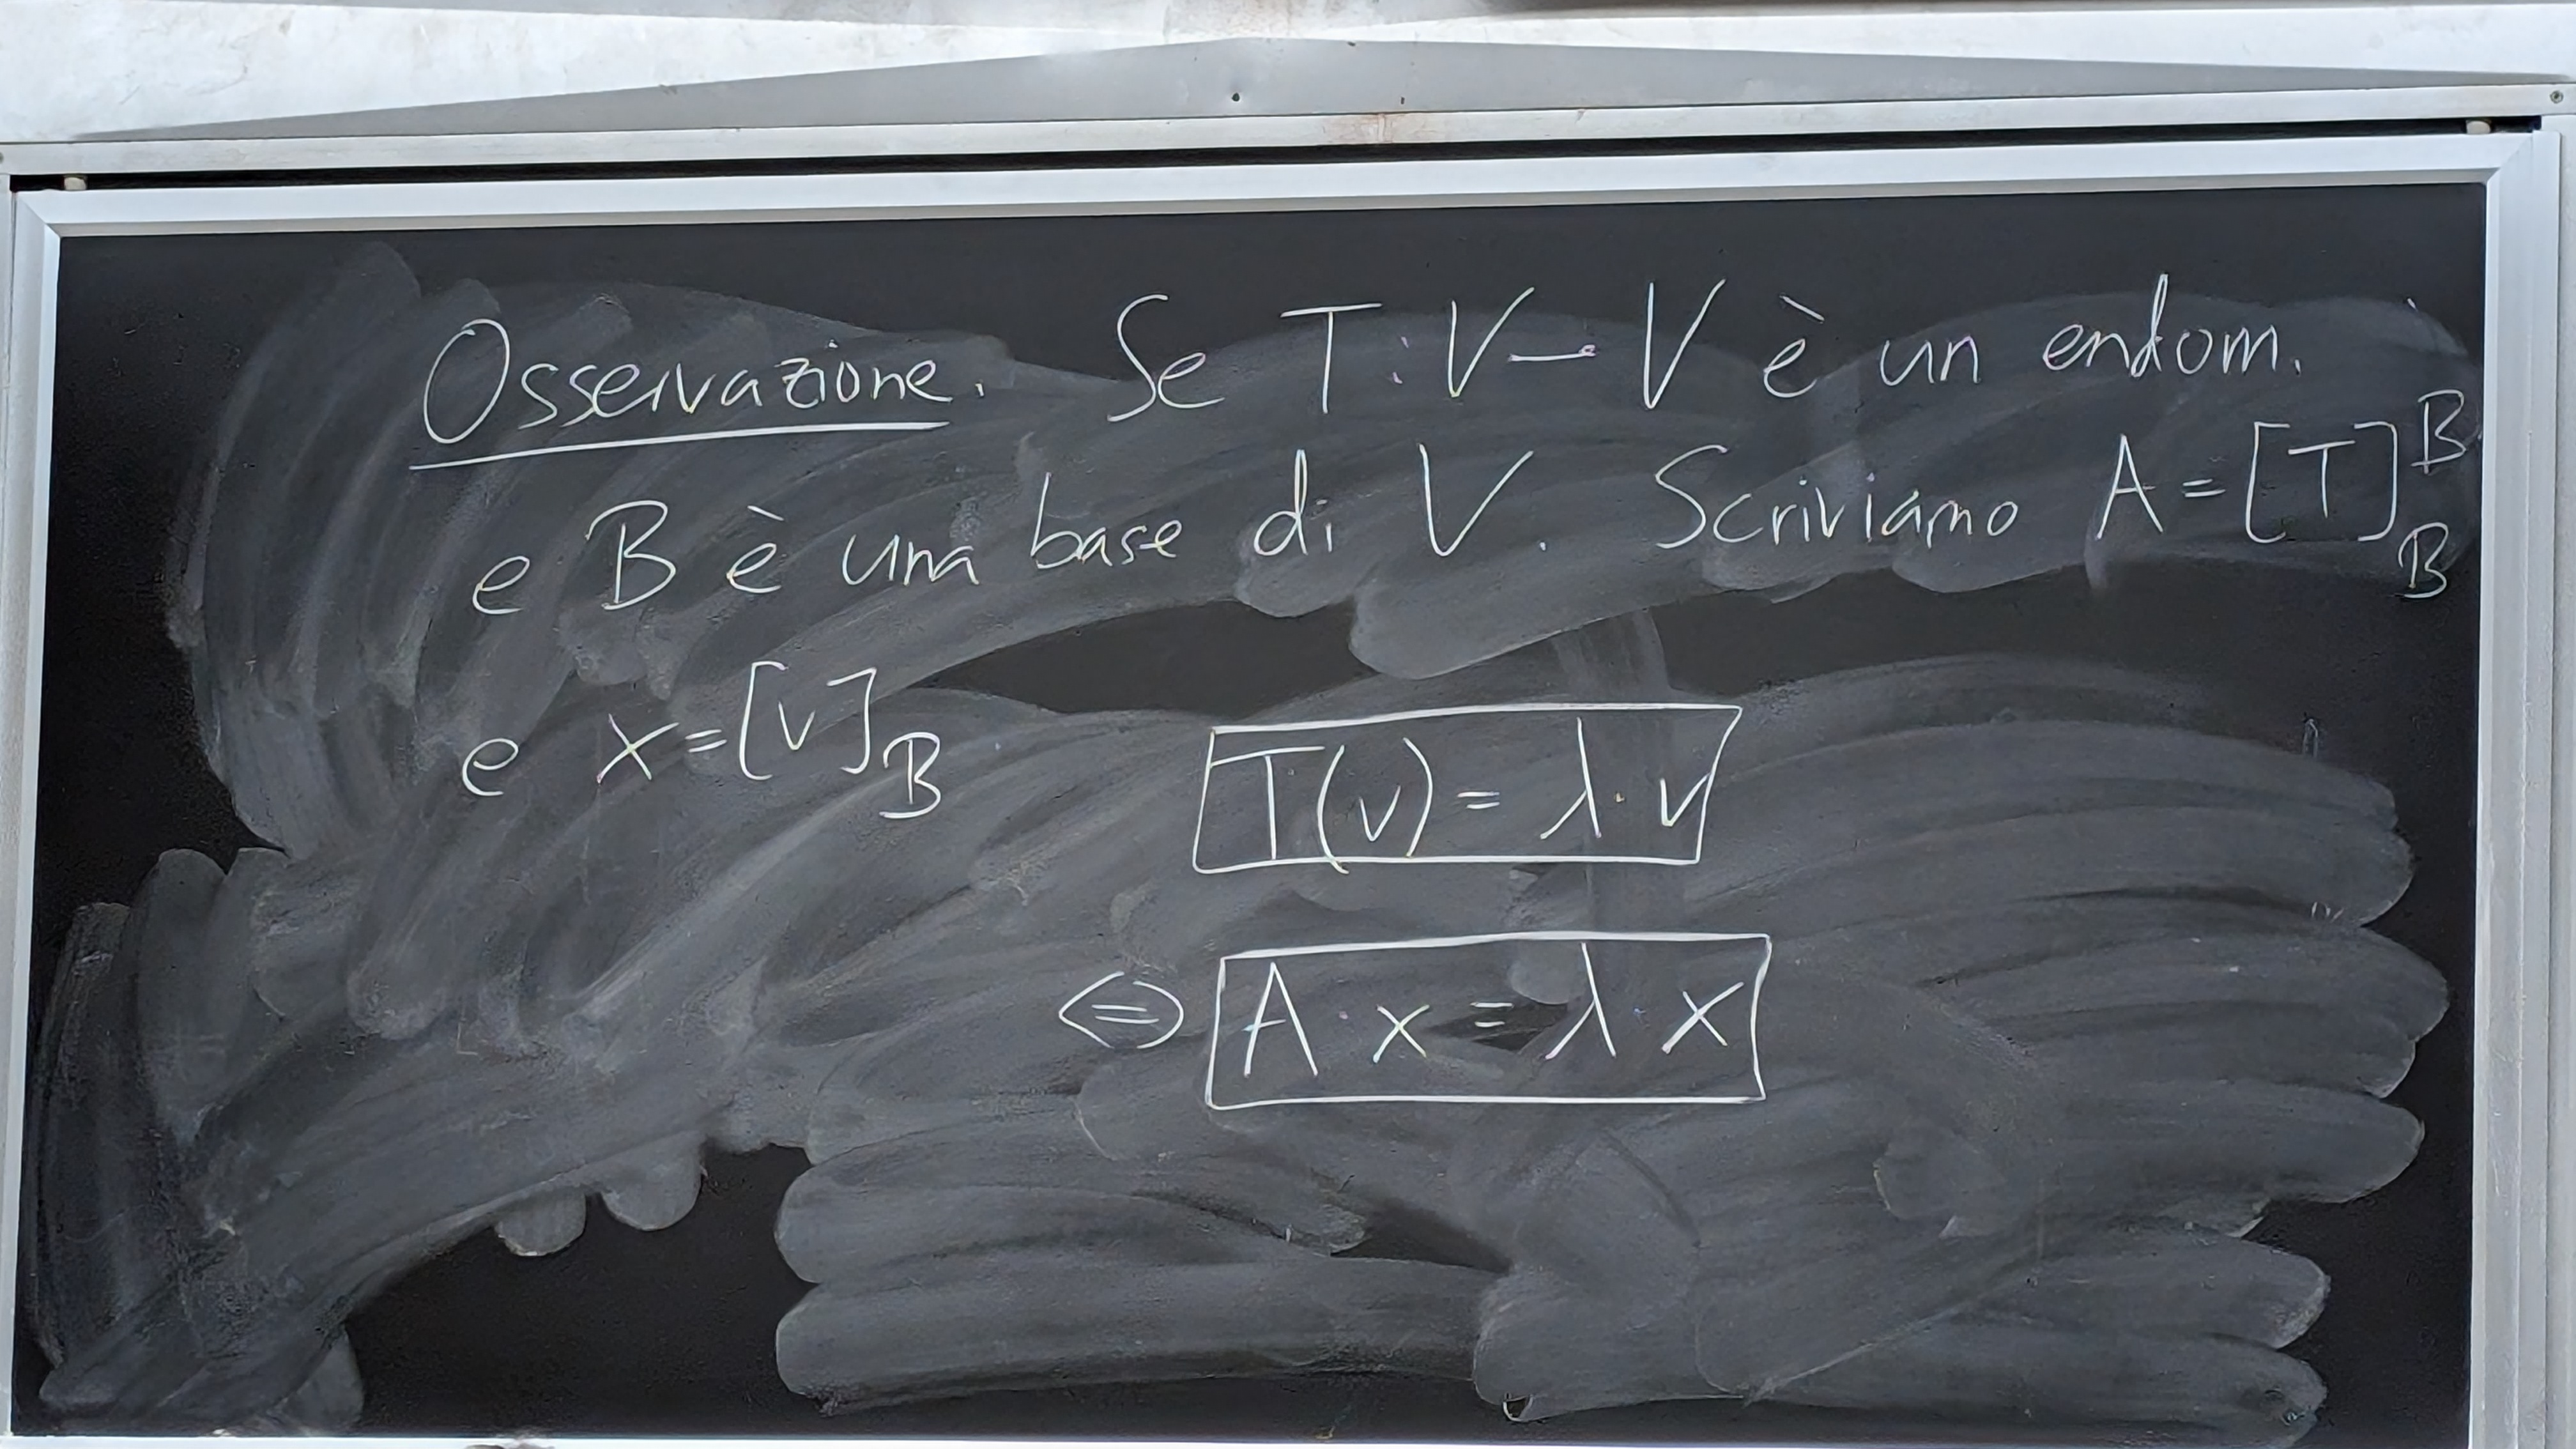 Osservazione. Se T: V → V è un endom.
e B è una base di V. Scriviamo A = [T]^B_B
e x = [v]_B
T(v) = λ · v
⇔ A · x = λ · x